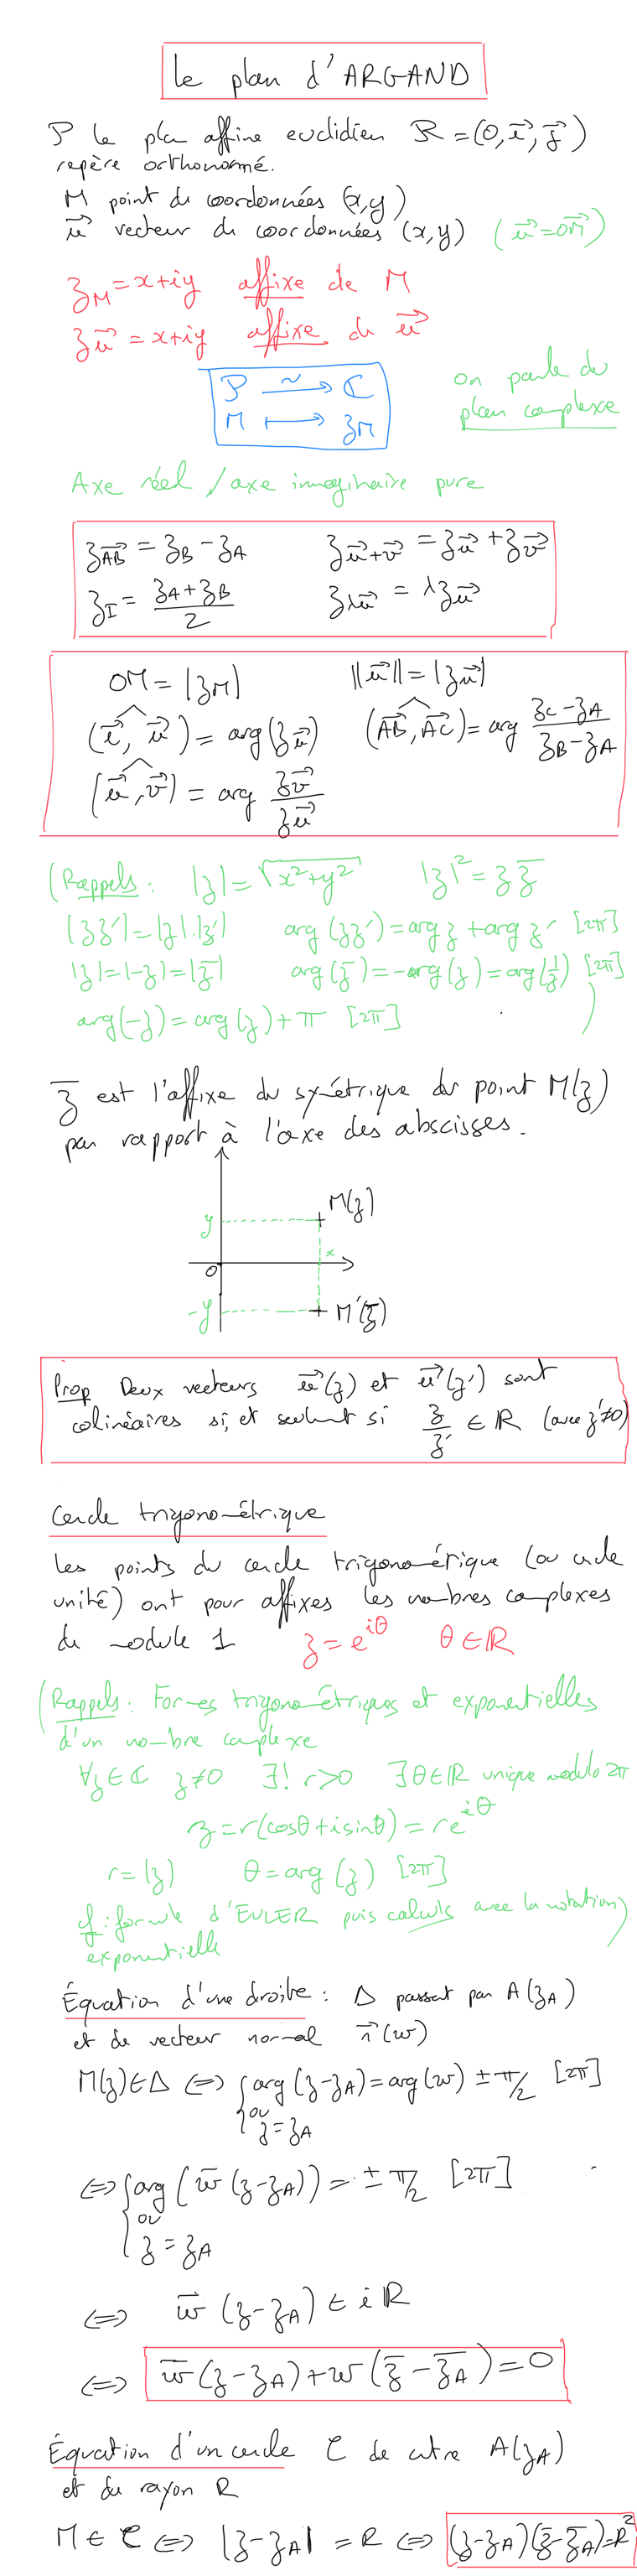 Le plan d'ARGAND
P le plan affine euclidien R = (O, i⃗, j⃗)
repère orthonormé.
M point de coordonnées (x,y)
u⃗ vecteur de coordonnées (x,y) (u⃗ = OM⃗)
z_M = x+iy affixe de M
z_u⃗ = x+iy affixe de u⃗
P ⥲ ℂ
M ⟼ z_M
on parle du
plan complexe
Axe réel / axe imaginaire pure
z_AB⃗ = z_B - z_A z_u⃗+v⃗ = z_u⃗ + z_v⃗
z_I = (z_A + z_B)/2 z_λu⃗ = λ z_u⃗
OM = |z_M| ||u⃗|| = |z_u⃗|
(i⃗, u⃗) = arg(z_u⃗) (AB⃗, AC⃗) = arg (z_C - z_A)/(z_B - z_A)
(u⃗, v⃗) = arg z_v⃗/z_u⃗
(Rappels : |z| = √(x²+y²) |z|² = z z̄
|zz'| = |z|.|z'| arg(zz') = arg z + arg z' [2π]
|z| = |-z| = |z̄| arg(z̄) = -arg(z) = arg(1/z) [2π]
arg(-z) = arg(z) + π [2π] )
z̄ est l'affixe du symétrique du point M(z)
par rapport à l'axe des abscisses.
M(z)
y
x
O
-y
M'(z̄)
Prop Deux vecteurs u⃗(z) et u⃗'(z') sont
colinéaires si, et seulement si z/z' ∈ ℝ (avec z'≠0)
Cercle trigonométrique
Les points du cercle trigonométrique (ou cercle
unité) ont pour affixes les nombres complexes
de module 1 z = e^{iθ} θ ∈ ℝ
(Rappels : Formes trigonométriques et exponentielles
d'un nombre complexe
∀z ∈ ℂ z≠0 ∃! r>0 ∃θ∈ℝ unique modulo 2π
z = r(cosθ + i sinθ) = r e^{iθ}
r = |z| θ = arg(z) [2π]
cf : formule d'EULER puis calculs avec la notation
exponentielle )
Équation d'une droite : Δ passant par A(z_A)
et de vecteur normal n⃗(w)
M(z)∈Δ ⟺ { arg(z-z_A) = arg(w) ± π/2 [2π]
ou
z = z_A
⟺ { arg(w̄(z-z_A)) = ± π/2 [2π]
ou
z = z_A
⟺ w̄ (z-z_A) ∈ iℝ
⟺ w̄(z-z_A) + w(z̄ - z̄_A) = 0
Équation d'un cercle C de centre A(z_A)
et de rayon R
M ∈ C ⟺ |z-z_A| = R ⟺ (z-z_A)(z̄-z̄_A) = R²